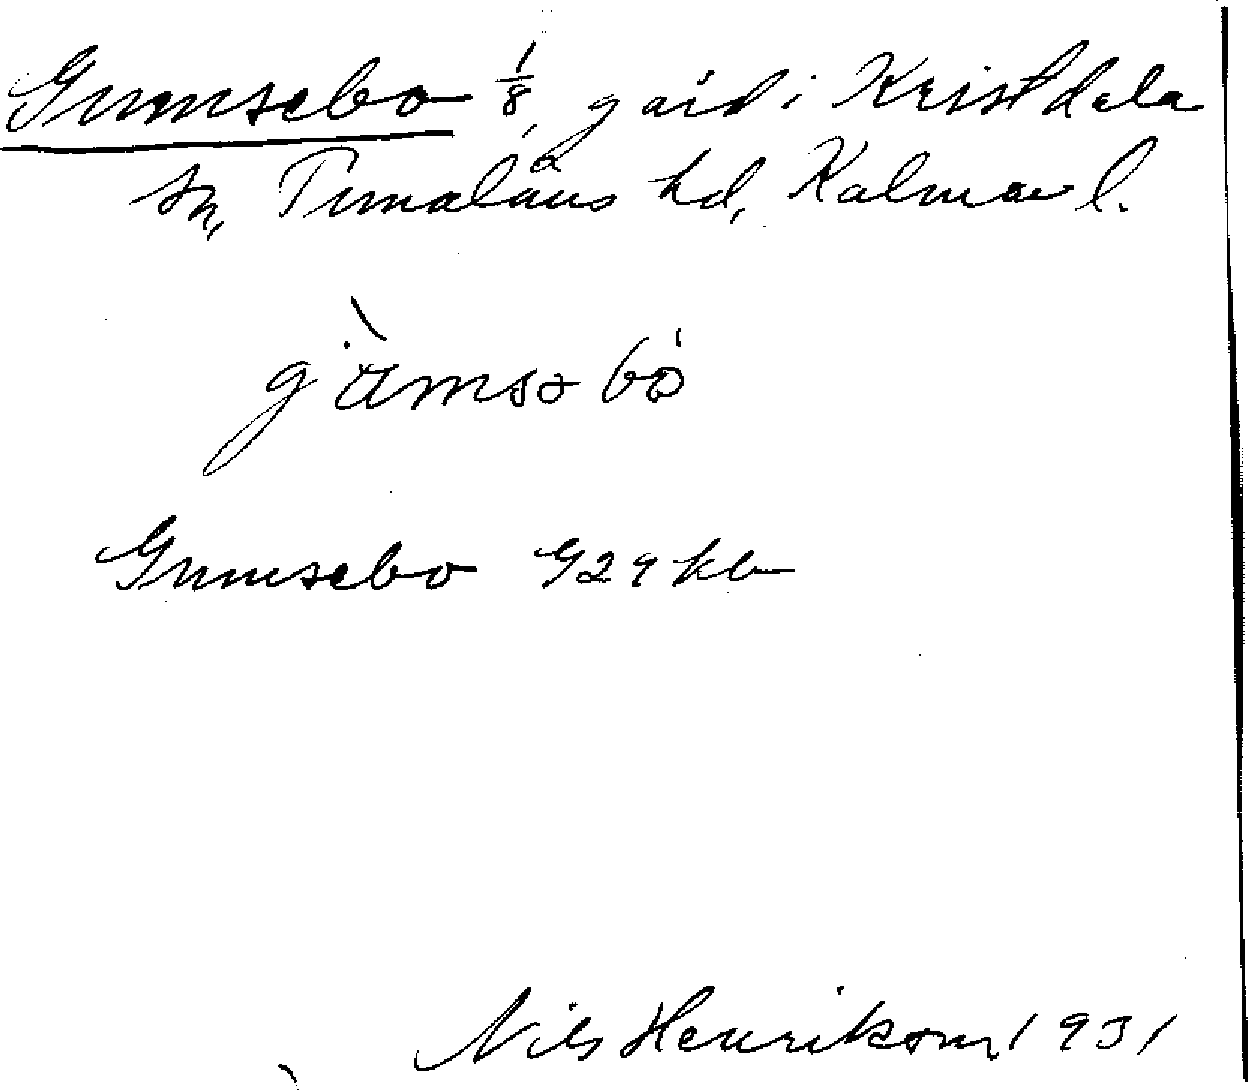 Gumsebo 1/8, gård i Kristdala
sn, Tunaläns hd, Kalmar l.
Gumsebo G29 kb
Nils Henrikson 1931